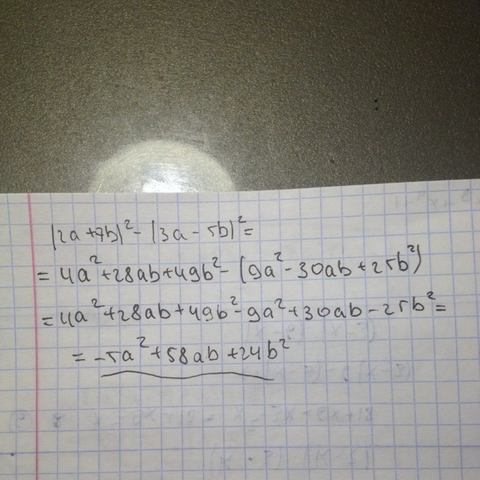 (2a+7b)²-(3a-5b)²=
=4a²+28ab+49b²-(9a²-30ab+25b²)
=4a²+28ab+49b²-9a²+30ab-25b²=
=-5a²+58ab+24b²